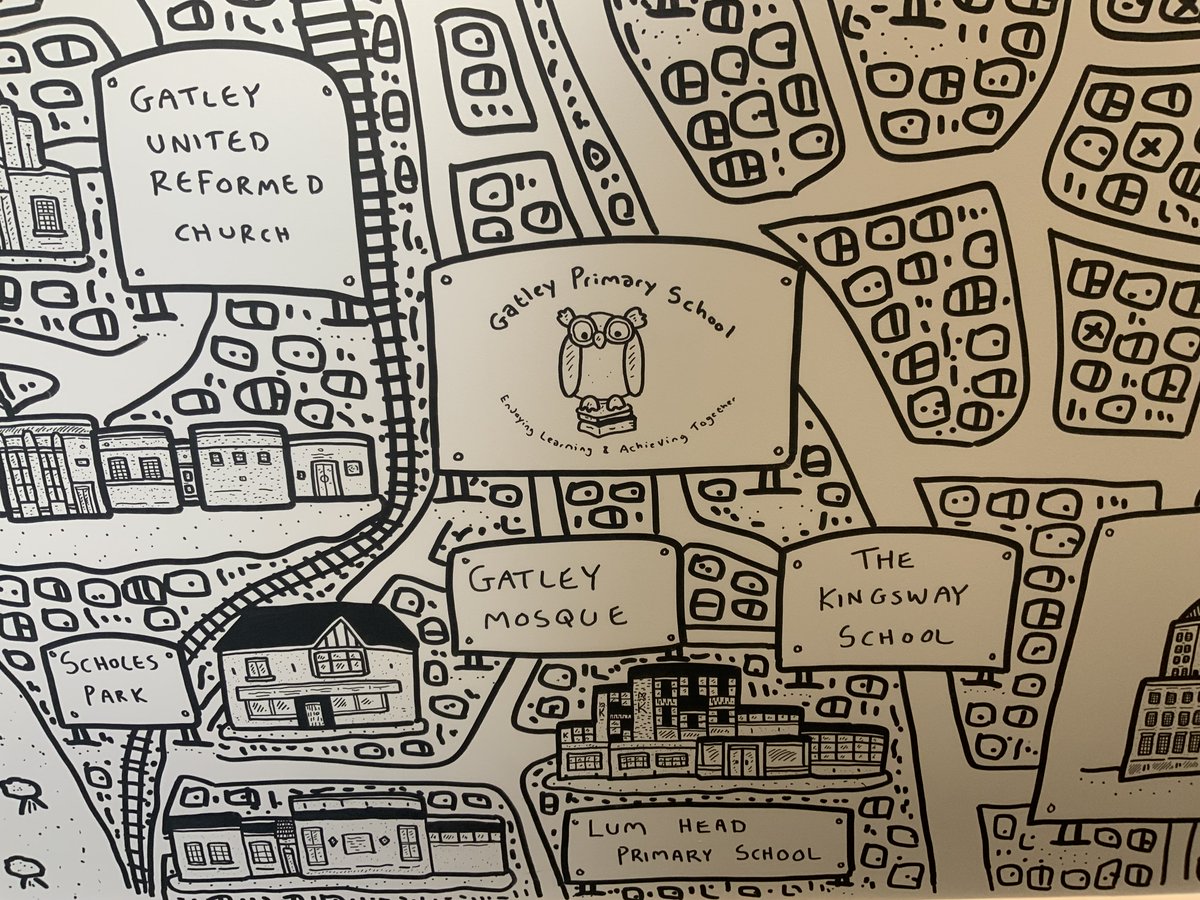 GATLEY
UNITED
REFORMED
CHURCH
Gatley Primary School
Enjoying Learning & Achieving Together
GATLEY
MOSQUE
THE
KINGSWAY
SCHOOL
SCHOLES
PARK
LUM HEAD
PRIMARY SCHOOL